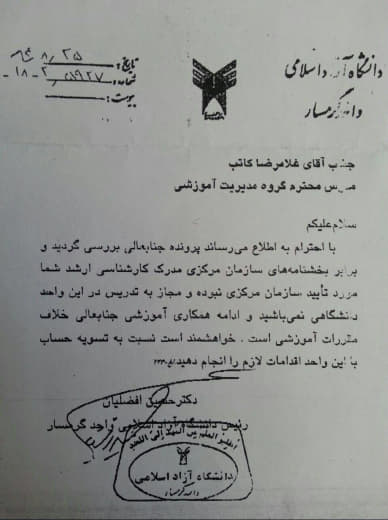 دانشگاه آزاد اسلامی
واحد گرمسار
تاریخ:
شماره:
پیوست:
جناب آقای غلامرضا کاتب
مدرس محترم گروه مدیریت آموزشی
سلام علیکم
با احترام به اطلاع می‌رساند پرونده جنابعالی بررسی گردید و
برابر بخشنامه‌های سازمان مرکزی مدرک کارشناسی ارشد شما
مورد تأیید سازمان مرکزی نبوده و مجاز به تدریس در این واحد
دانشگاهی نمی‌باشید و ادامه همکاری آموزشی جنابعالی خلاف
مقررات آموزشی است . خواهشمند است نسبت به تسویه حساب
با این واحد اقدامات لازم را انجام دهید
دکتر حسین افضلیان
رئیس دانشگاه آزاد اسلامی واحد گرمسار
دانشگاه آزاد اسلامی
واحد گرمسار